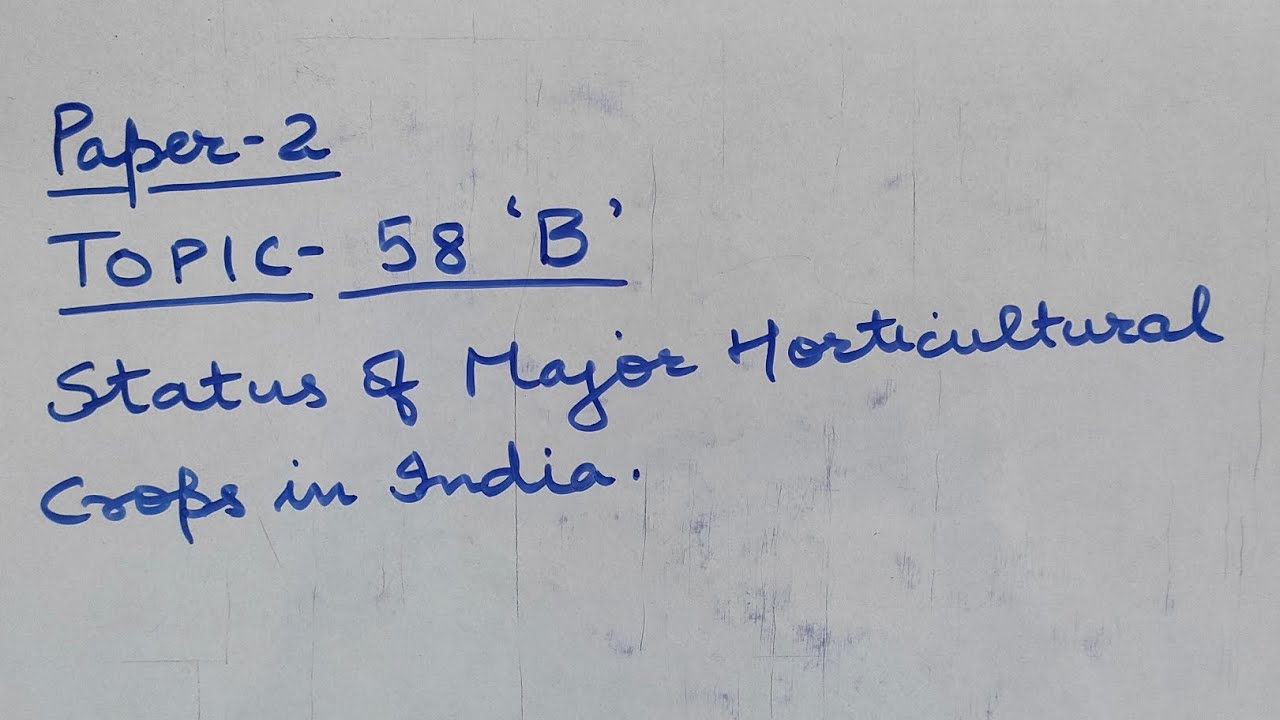 Paper-2
TOPIC- 58 'B'
Status of Major Horticultural
Crops in India.